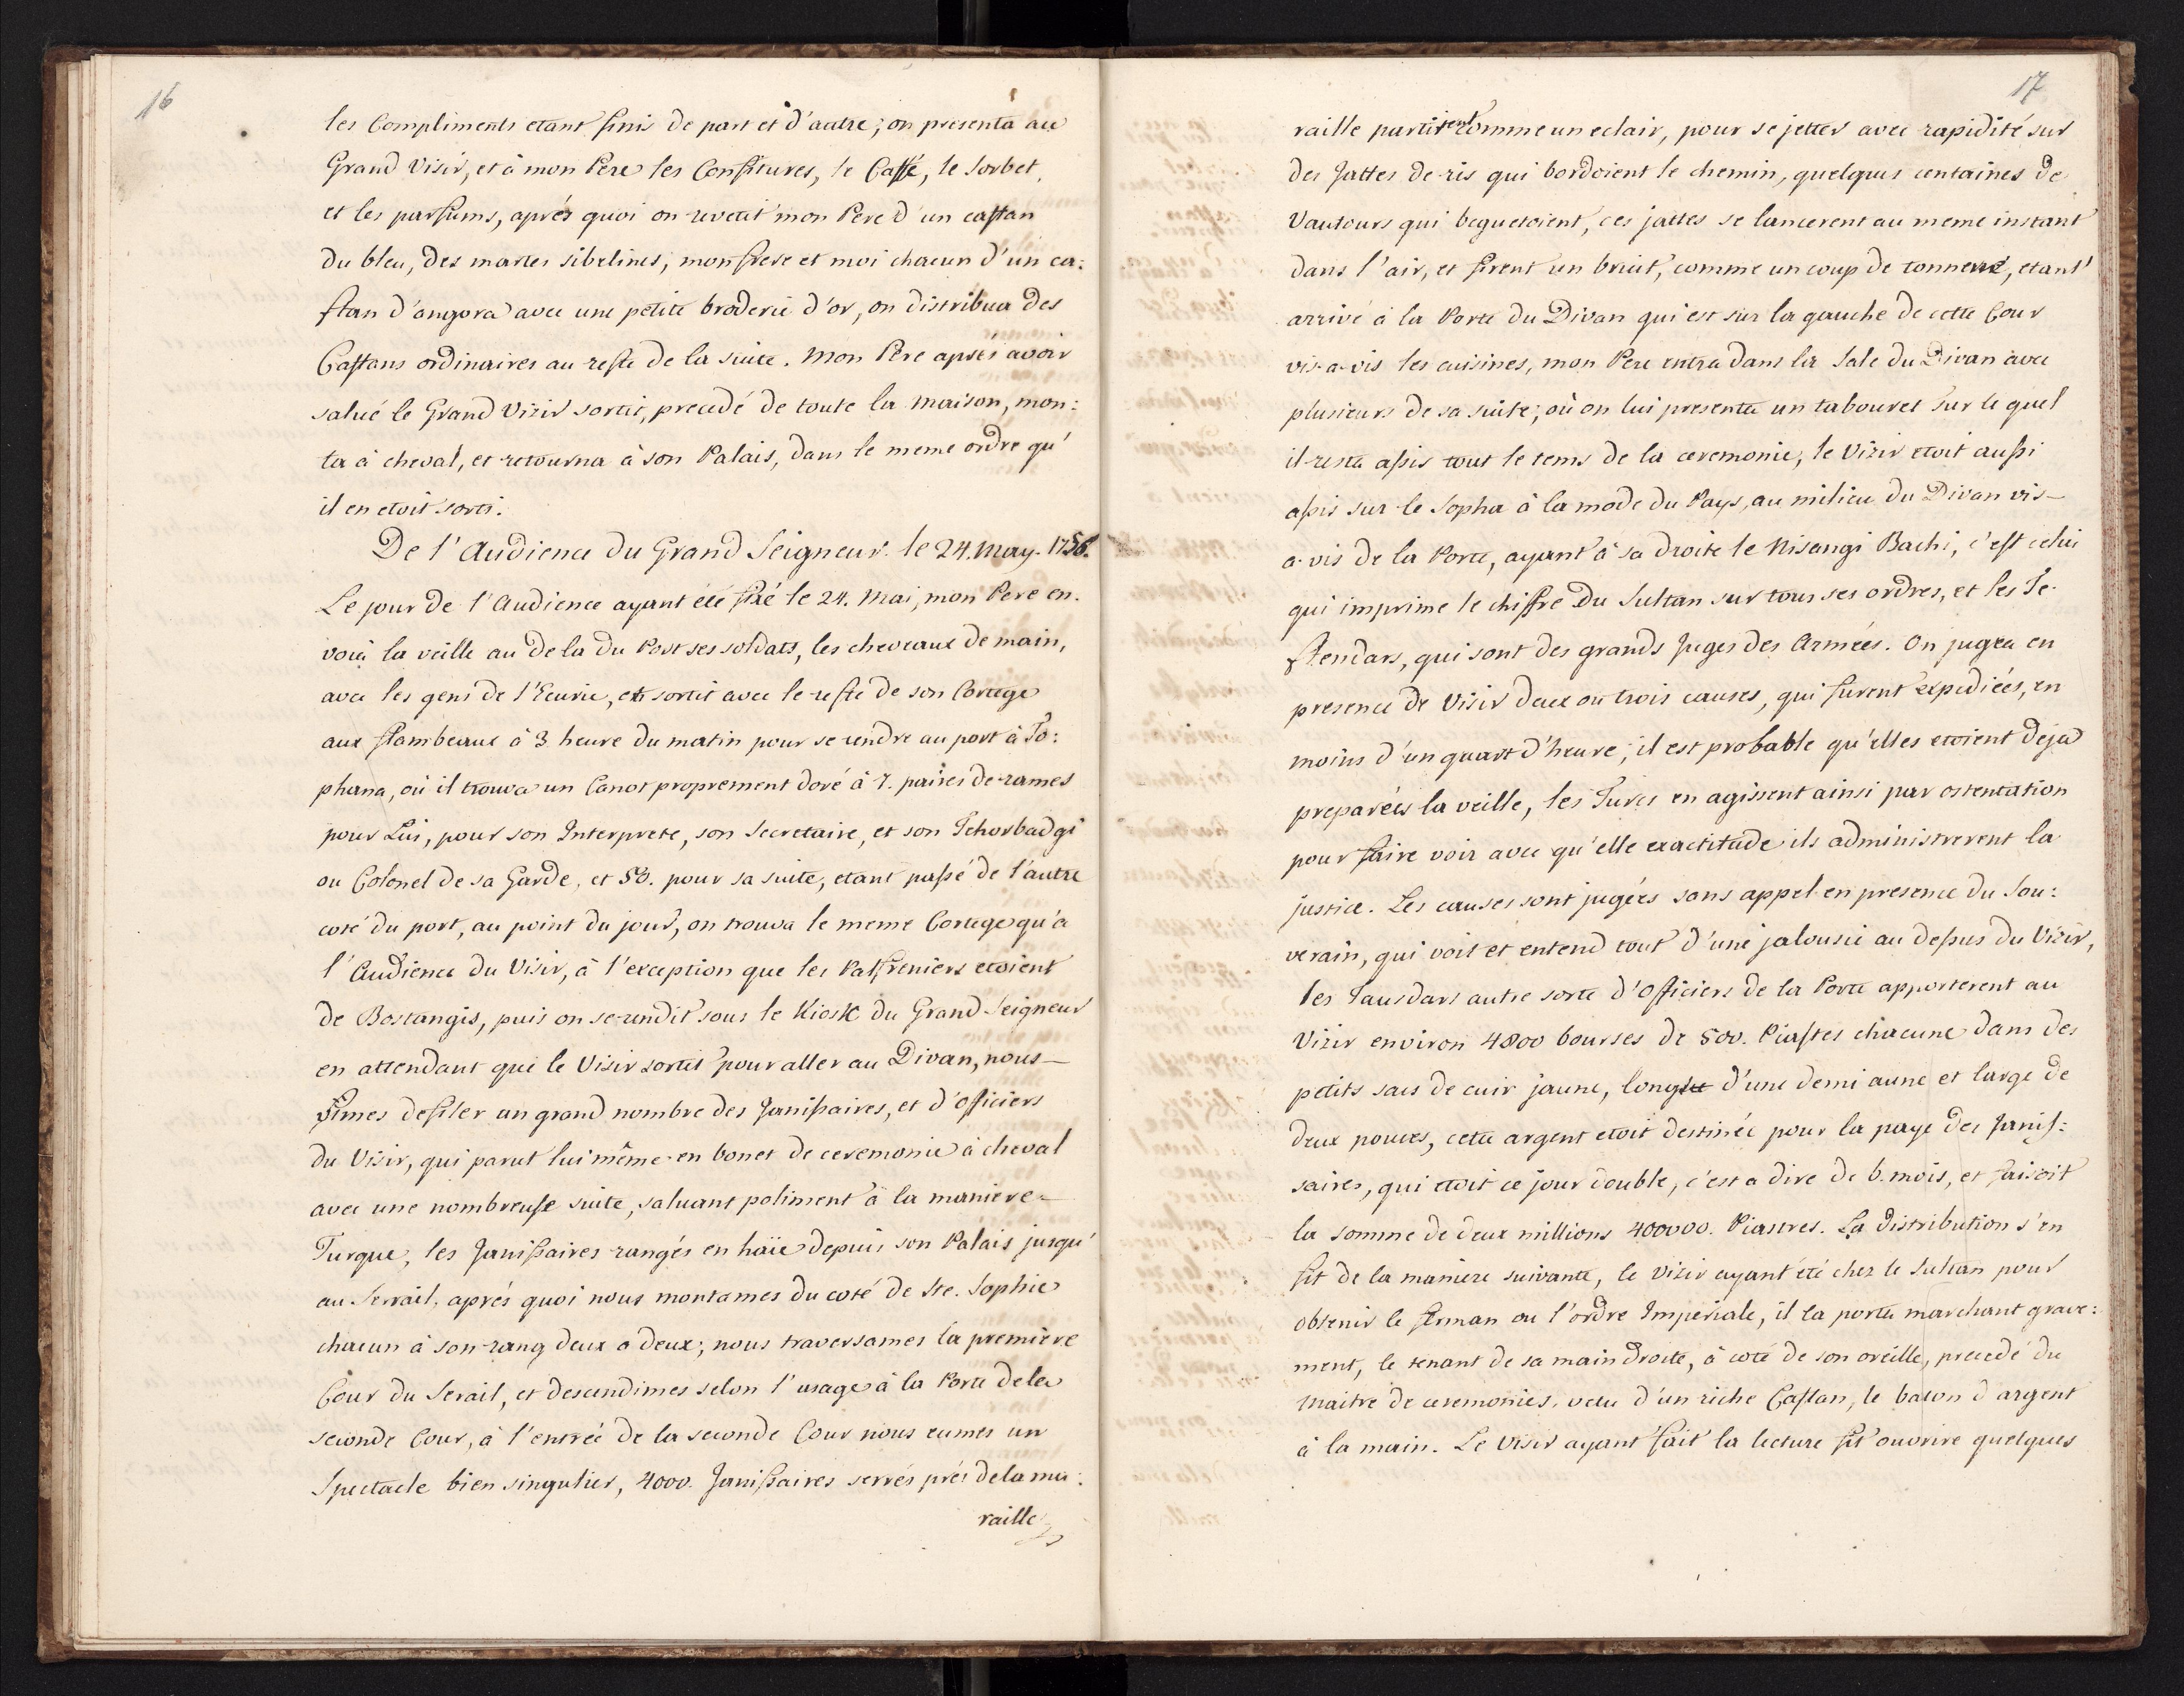 16
les Compliments etant finis de part et d'autre; on presenta au
Grand Visir, et à mon Pere les Confitures, le Caffé, le Sorbet,
et les parfums, aprés quoi on revetit mon Pere d'un caftan
du bleu, des martes sibelines, mon frere et moi chacun d'un ca:
ftan d'angora avec une petite broderie d'or, on distribua des
Caftans ordinaires au reste de la suite. Mon Pere aprés avoir
salué le Grand Vizir sortit, precedé de toute la maison, mon:
ta à cheval, et retourna à son Palais, dans le meme ordre qu'
il en etoit sorti.
De l'Audience du Grand Seigneur. le 24. May. 1756.
Le jour de l'Audience ayant été fixé le 24. Mai, mon Pere en-
voia la veille au de la du Port ses soldats, les cheveaux de main,
avec les gens de l'Ecurie, et sortit avec le reste de son Cortege
aux flambeaux à 3 heure du matin pour se rendre au port à To:
phana, où il trouva un Canot proprement doré à 7. paires de rames
pour Lui, pour son Interprete, son Secretaire, et son Tchorbadgi
ou Colonel de sa Garde, et 50. pour sa suite, etant passé de l'autre
coté du port, au point du jour, on trouva le meme Cortege qu'a
l'Audience du Visir, à l'exception que les Palfreniers etoient
de Bostangis, puis on se rendit sous le Kiosk du Grand-Seigneur
en attendant que le Visir sortit pour aller au Divan, nous-
vimes defiler un grand nombre des Janissaires, et d'Officiers
du Visir, qui parut lui même en bonet de ceremonie à cheval
avec une nombreuse suite, saluant poliment à la maniere-
Turque, les Janissaires rangés en haïe depuis son Palais jusqu'
au Serrail, aprés quoi nous montames du coté de Ste. Sophie
chacun à son rang deux a deux; nous traversames la premiere
Cour du Serail, et descendimes selon l'usage à la Porte de la
seconde Cour, à l'entrée de la seconde Cour nous eumes un
Spectacle bien singulier, 4000. Janissaires serrés prés de la mu:
raille
17
raille partirent comme un eclair, pour se jetter avec rapidité sur
des Jattes de ris qui bordoient le chemin, quelques centaines de
Vautours qui bequetoient, ces jattes se lancerent au meme instant
dans l'air, et firent un bruit, comme un coup de tonnerre, etant
arrivé à la Porte du Divan qui est sur la gauche de cette Cour
vis-a-vis les cuisines, mon Pere entra dans la Sale du Divan avec
plusieurs de sa suite; où on lui presenta un tabouret sur le quel
il resta assis tout le tems de la ceremonie, le Vizir etoit aussi
assis sur le Sopha à la mode du Pays, au milieu du Divan vis-
a-vis de la Porte, ayant à sa droite le Nisangi Bachi, c'est celui
qui imprime le chiffre du Sultan sur tous ses ordres, et les Te-
ftendars, qui sont des grands Juges des Armées. On jugea en
presence de Visir deux ou trois causes, qui furent expediées, en
moins d'un quart d'heure; il est probable qu'elles etoient deja
preparées la veille, les Turcs en agissent ainsi par ostentation
pour faire voir avec qu'elle exactitude ils administrerent la
justice. Les causes sont jugées sans appel en presence du Sou:
verain, qui voit et entend tout d'une jalousie au dessus du Vizir,
les Tausdars autre sorte d'Officiers de la Porte apporterent au
Vizir environ 4800 bourses de 500. Piastes chacune dans des
petits sacs de cuir jaune, long d'une demi aune et large de
deux pouces, cette argent etoit destinée pour la paye des Janis:
saires, qui etoit ce jour double, c'est a dire de 6. mois, et faisoit
la somme de deux millions 400000. Piastres. La distribution s'en
fit de la maniere suivante, le Vizir ayant été chez le Sultan pour
obtenir le firman ou l'ordre Imperiale, il la porta marchant grave:
ment, le tenant de sa main droite, à coté de son oreille, precedé du
Maitre de ceremonies, vetu d'un riche Caftan, le baton d'argent
à la main. Le Visir ayant fait la lecture fit ouvrire quelques